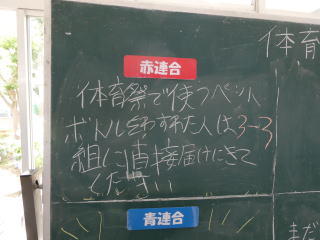 赤連合
体育
体育祭で使うペット
ボトルをわすれた人は3-3
組に直接届けにきて
ください
青連合
まだ